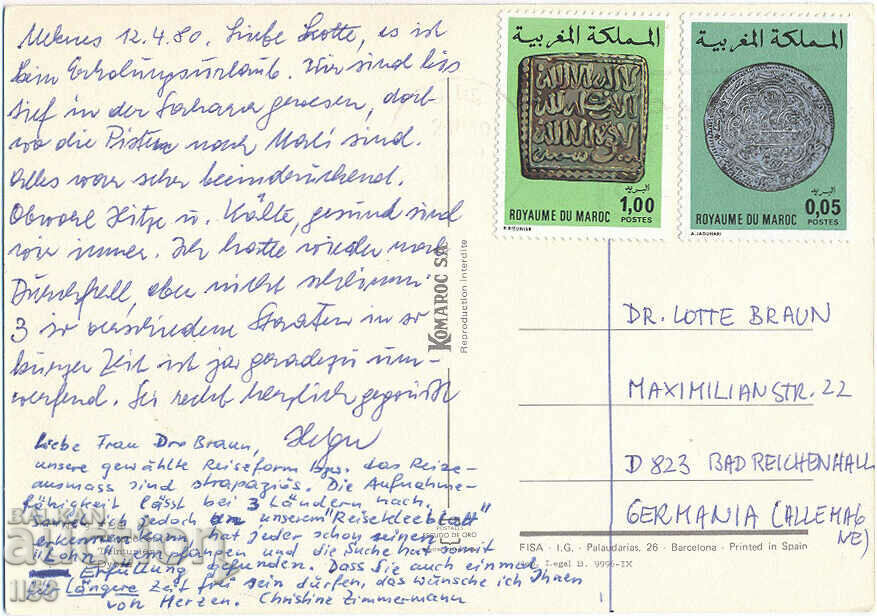 Meknes 12.4.80. Liebe Lotte, es ist
kein Erholungsurlaub. Wir sind bis
tief in der Sahara gewesen, dort
wo die Pisten nach Mali sind.
Alles war sehr beeindruckend.
Obwohl Hitze u. Kälte, gesund sind
wir immer. Ich hatte wieder mal
Durchfall, aber nicht schlimm.
3 so verschiedene Staaten in so
kurzer Zeit ist ja geradezu um-
werfend. Sei recht herzlich gegrüßt
Liebe Frau Dr. Braun,
unsere gewählte Reiseform bzw. das Reize-
ausmass sind strapaziös. Die Aufnahme-
fähigkeit lässt bei 3 Ländern nach.
jedoch an unserem "Reisekleeblatt"
erkennen kann, hat jeder schon seinen
"Lohn" empfangen und die Suche hat somit
Erfüllung gefunden. Dass Sie auch einmal
längere Zeit frei sein dürfen, das wünsche ich Ihnen
von Herzen. Christine Zimmermann
KOMAROC SA
Reproduction Interdite
المملكة المغربية
البريد
1,00
ROYAUME DU MAROC POSTES
المملكة المغربية
البريد
0,05
ROYAUME DU MAROC POSTES
DR. LOTTE BRAUN
MAXIMILIANSTR. 22
D 823 BAD REICHENHALL
GERMANIA (ALLEMAG
NE)
POSTALES
ESCUDO DE ORO
FISA - I.G. - Palaudarias, 26 - Barcelona - Printed in Spain
Legal B. 9996-IX
BALKAN
auction